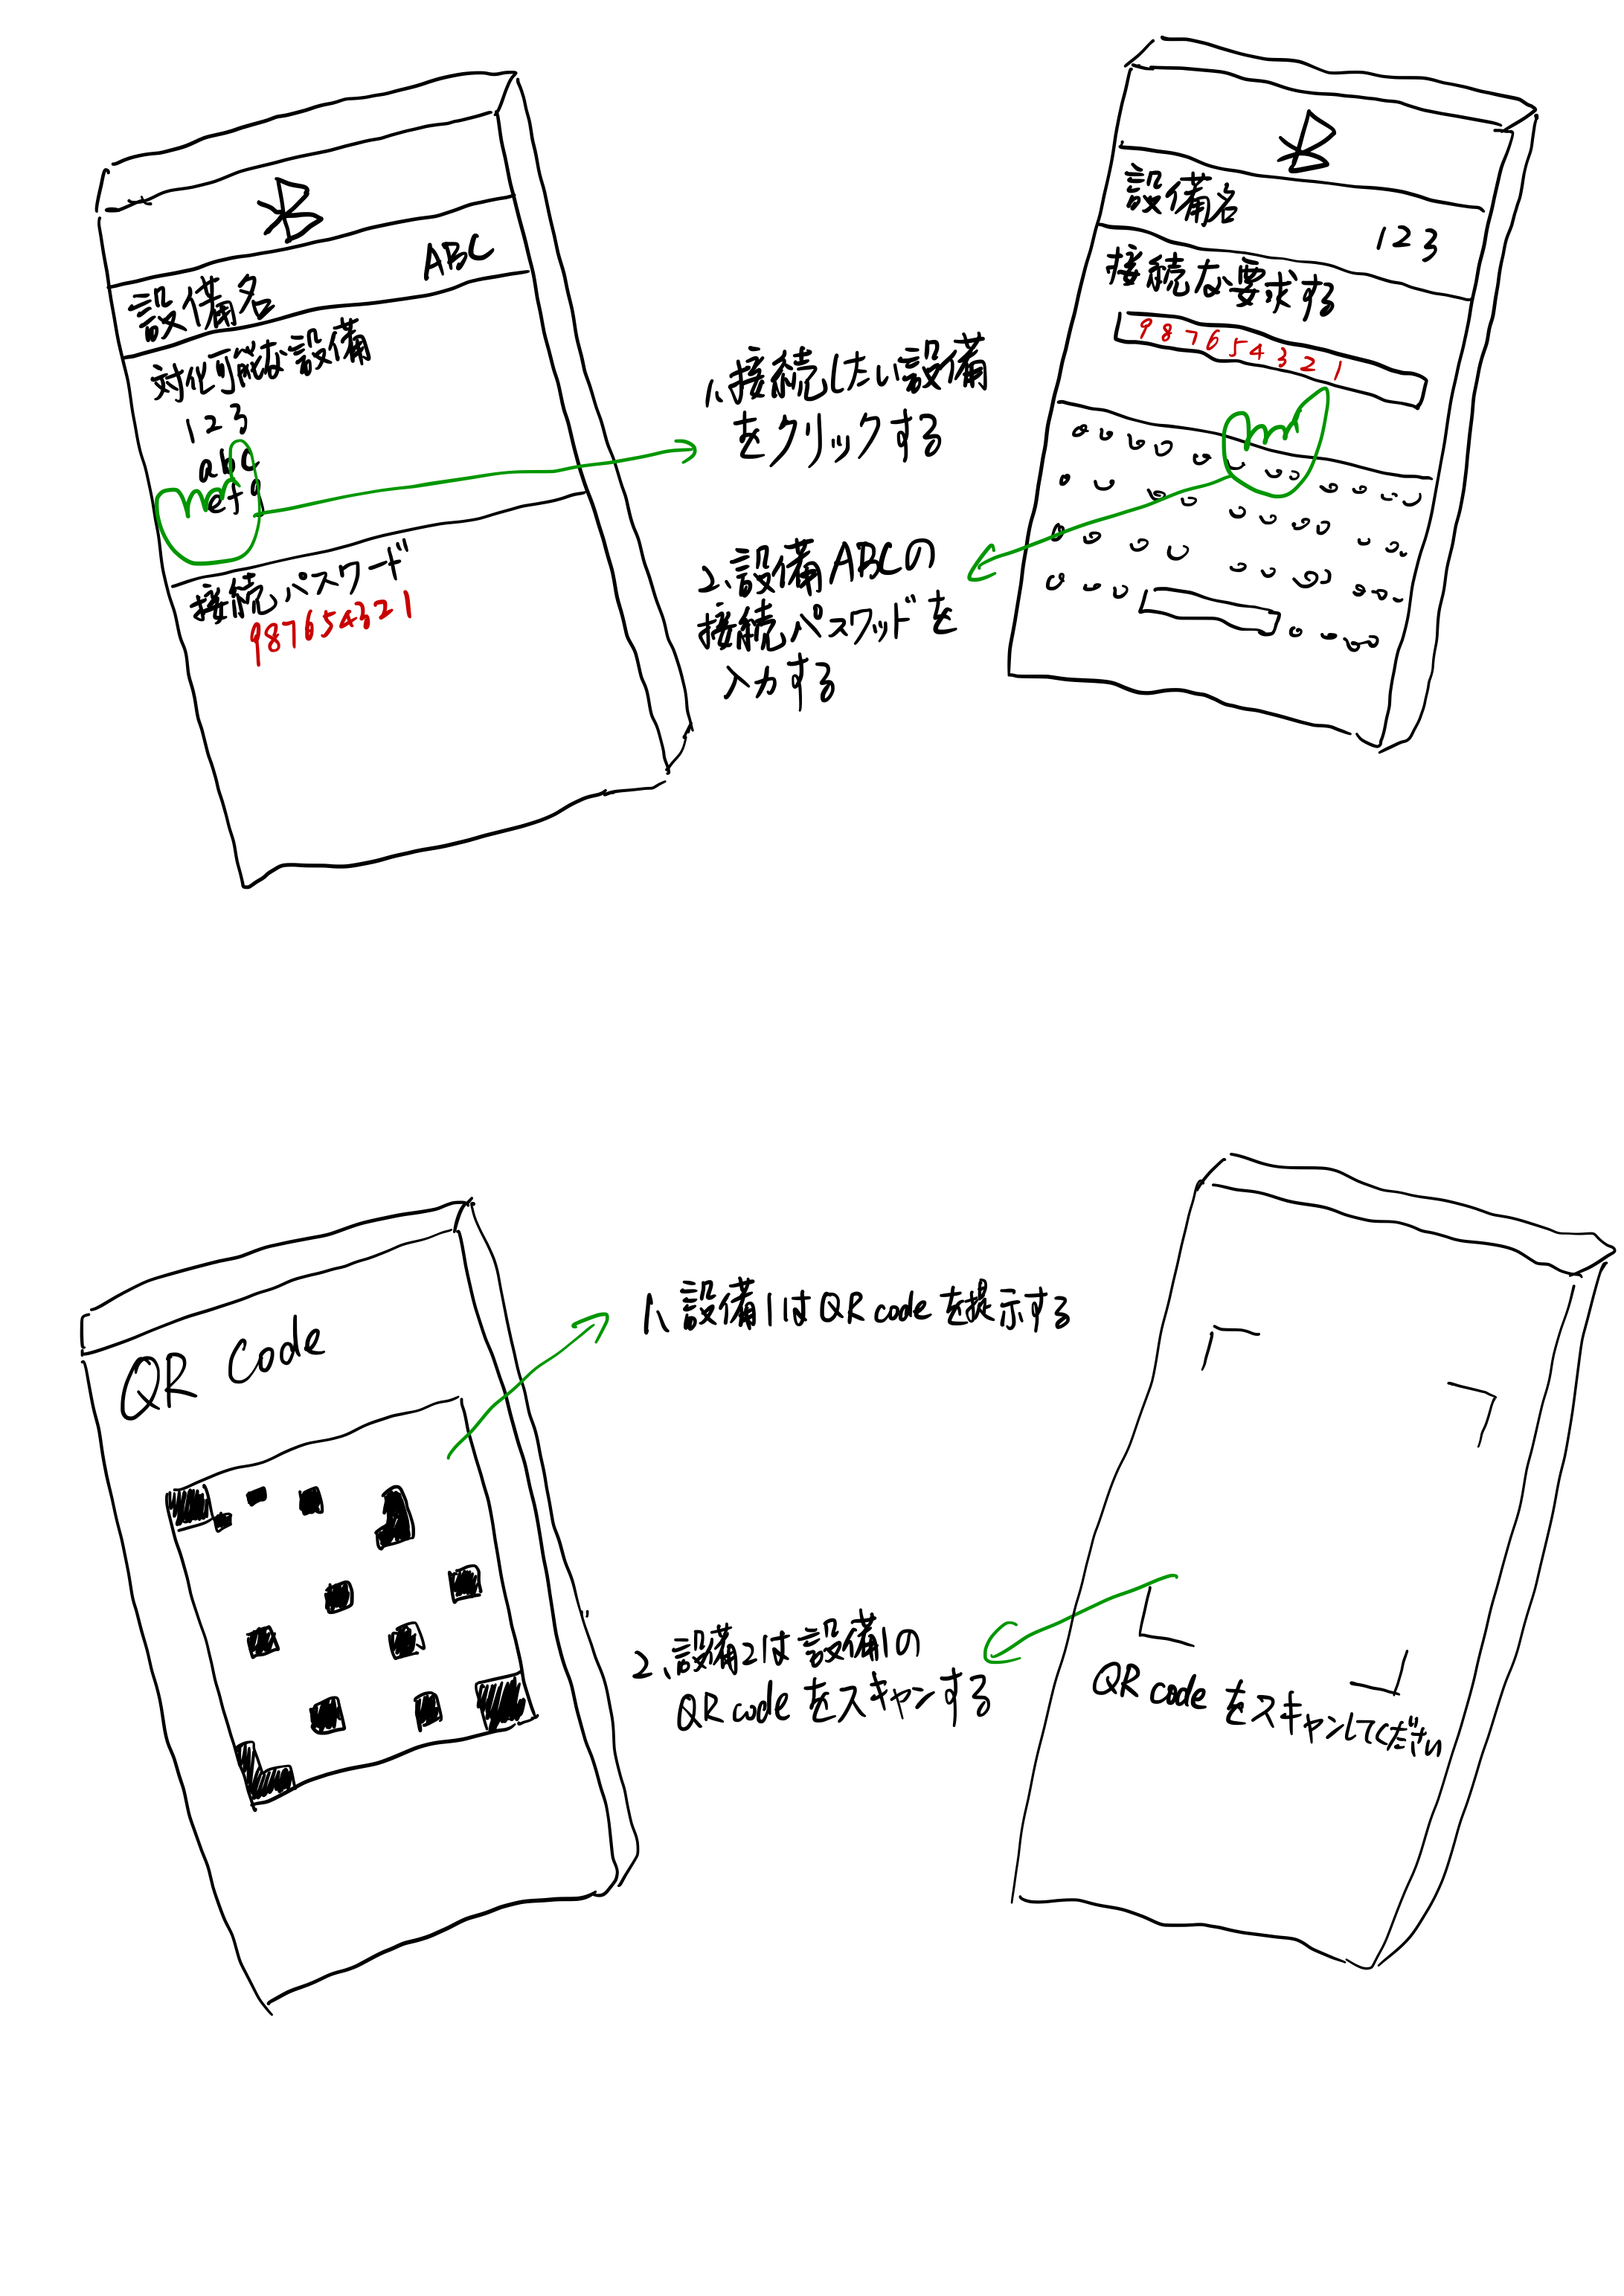 設備名 ABC
対化可能な設備
123
abc
efg
接続パスワード
987654321
1、接続したい設備
をクリックする
2、設備ABCの
接続パスワッドを
入力する
設備名 123
接続な要求する
987654321
QR Code
1、設備1はQR codeを提示する
2、設備2は設備1の
QR codeをスキャンする
QR codeをスキャンしてください